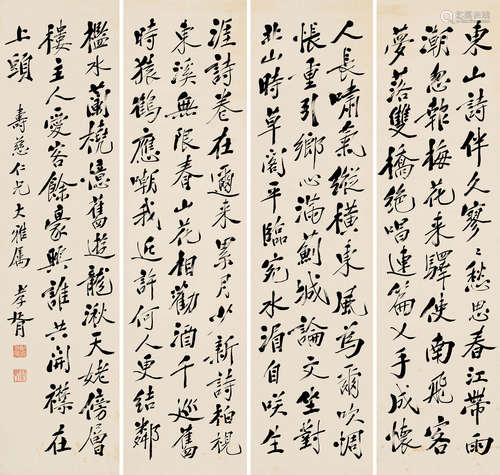 東山詩伴久寥寥愁思春江帶雨
潮忽報梅花来驛使南飛客
夢落雙橋絶唱連篇入手成懷
人長嘯氣縱橫東風爲爾吹惆
悵重引鄉心滿薊城論文坐對
北山時草閣平臨宛水湄自笑生
涯詩卷在邇来累月少新詩柏梘
東溪無限春山花相勸酒千巡舊
時猿鶴應嘲我近許何人更結鄰
檻水蘭橈憶舊遊龍湫天姥傍層
樓主人愛客餘豪興誰共開襟在
上頭
壽慈仁兄大雅屬 孝胥